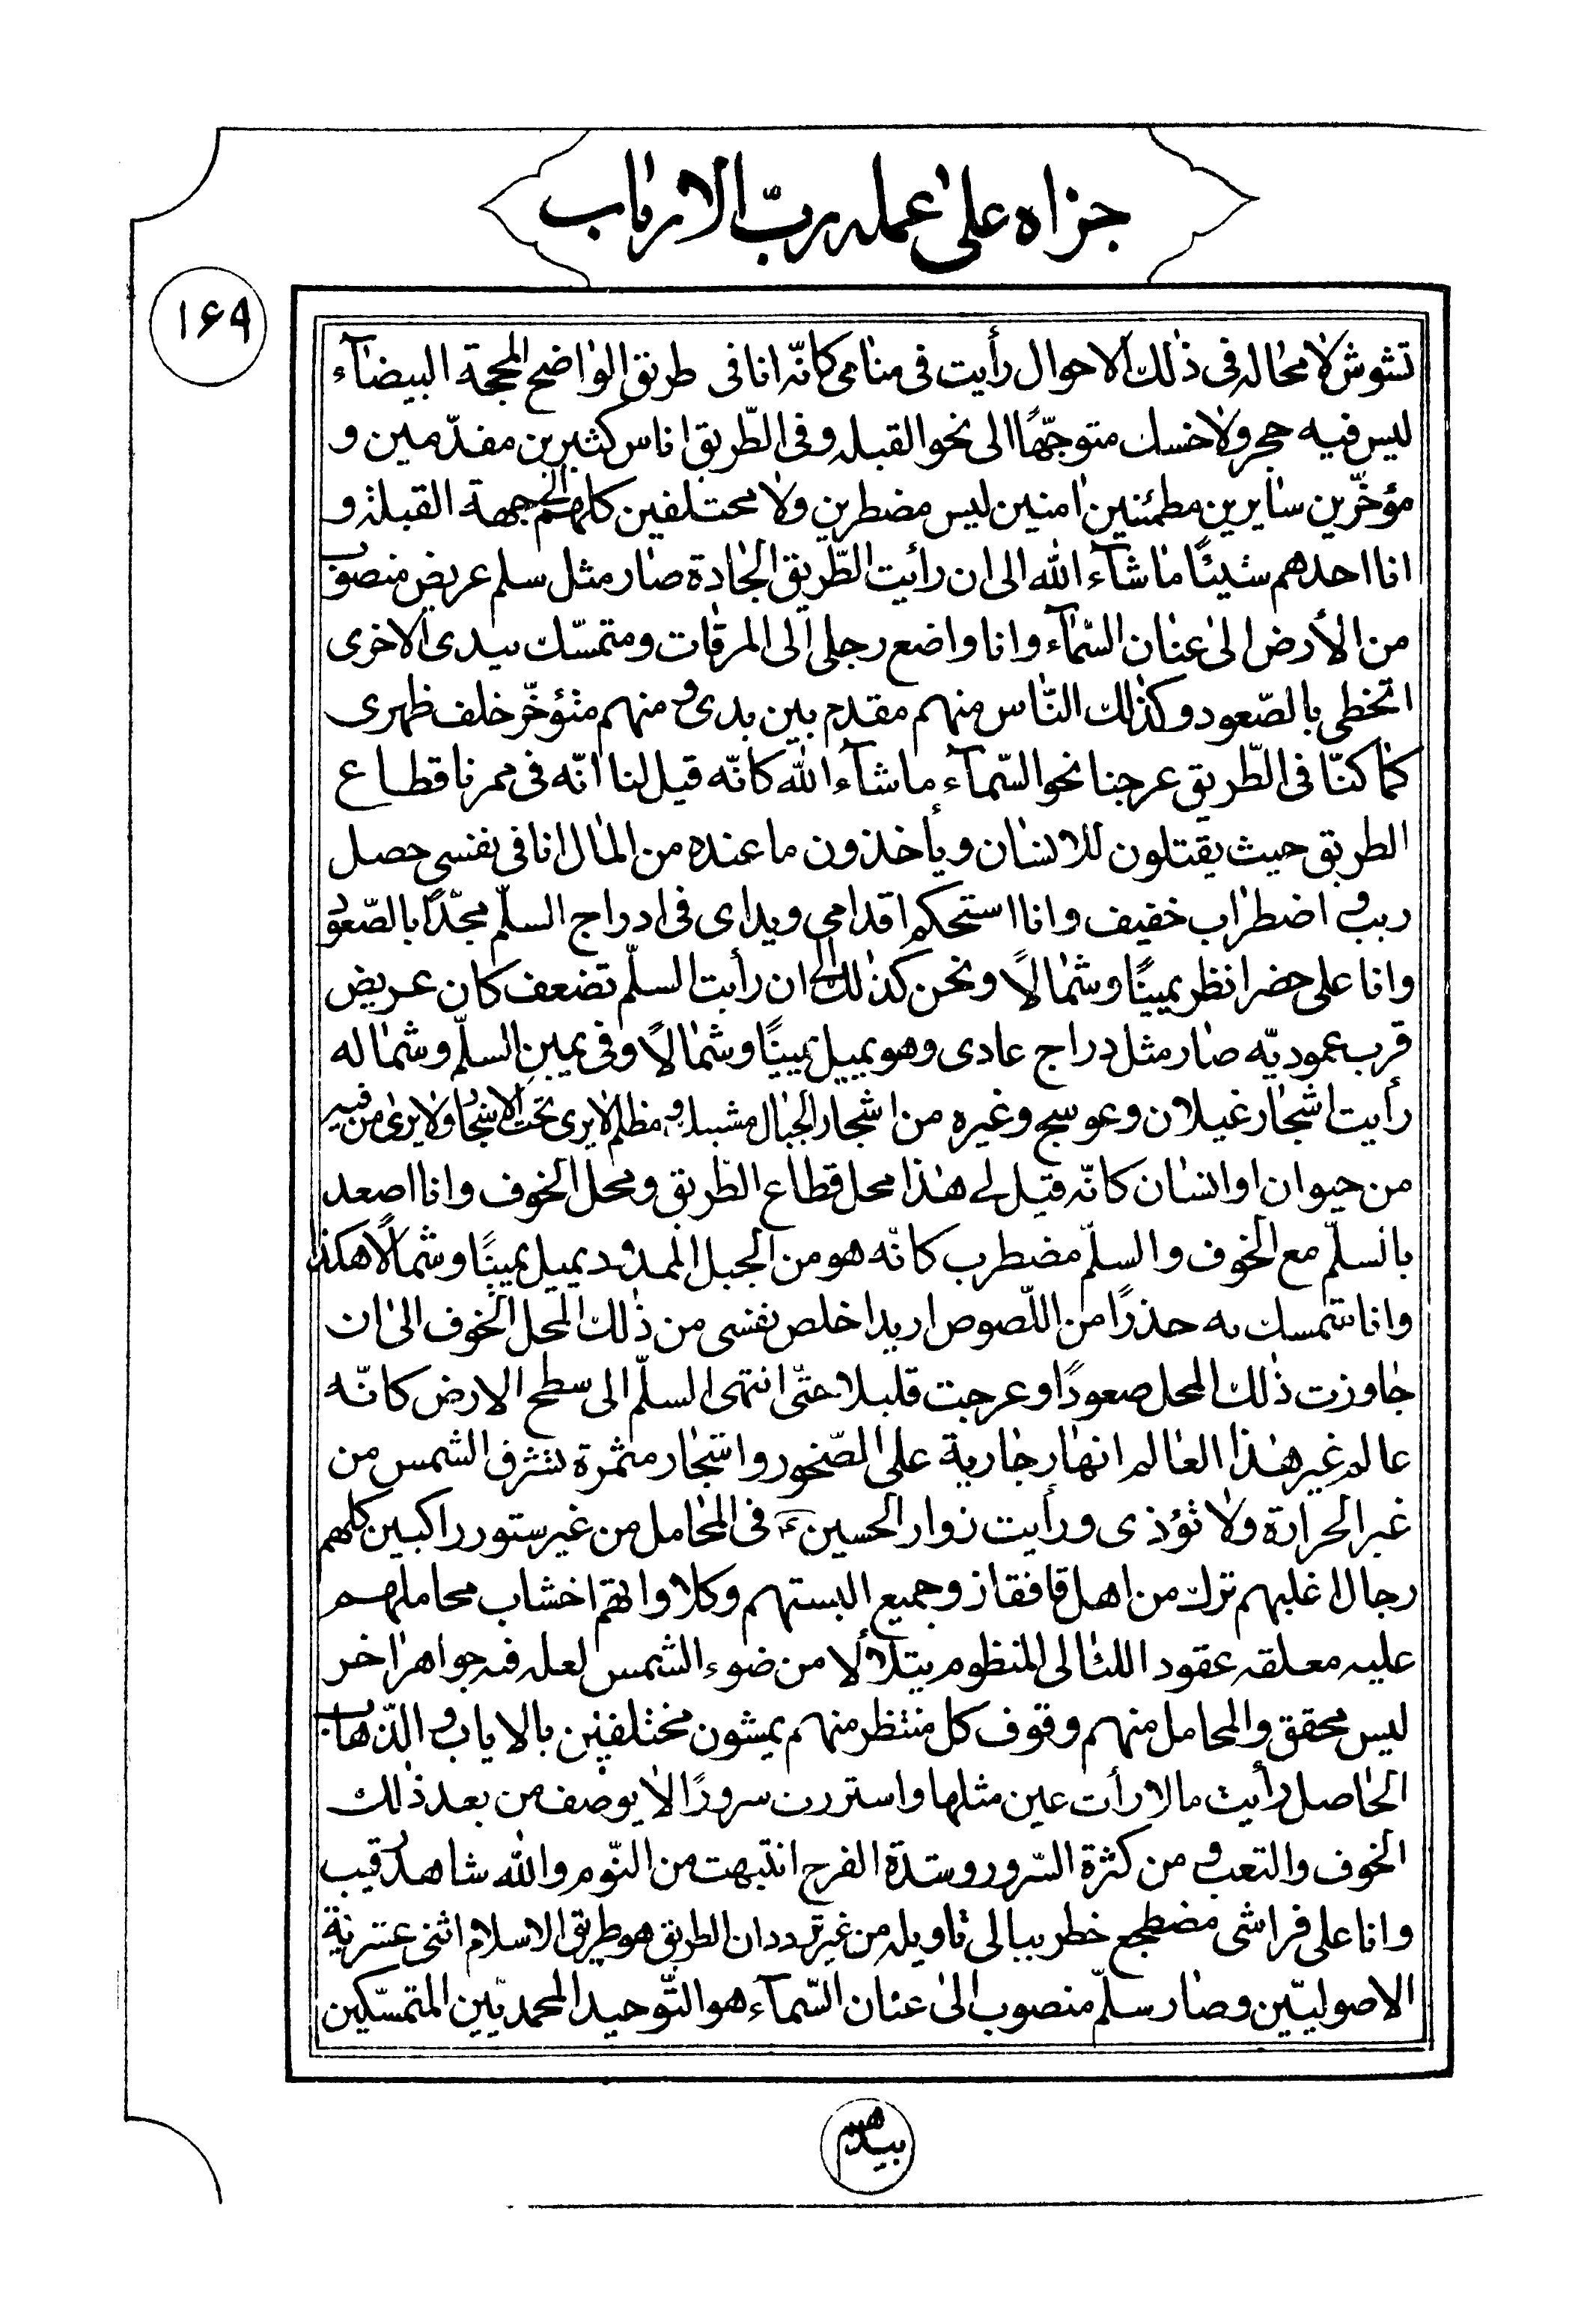 جزاه على عمله ربّ الارباب
۱۶۹
تشوش لا محاله فى ذلك الاحوال رأيت فى منامى كانّه انا فى طريق الواضح المحجة البيضآء
ليس فيه حجر ولا خسك متوجّهًا الى نحو القبله و فى الطّريق اناس كثيرين مقدّمين و
مؤخّرين سايرين مطمئنين امنين ليس مضطرين ولا مختلفين كلهم الى جهة القبلة و
انا احدهم شيئًا ما شآء الله الى ان رأيت الطّريق الجادة صار مثل سلم عريض منصوب
من الأرض الى عنان السّمآء وانا واضع رجلى الى المرقات ومتمسّك بيدى الاخرى
اتخطى بالصّعود وكذلك النّاس منهم مقدم بين يدى و منهم مئؤخّر خلف ظهرى
كما كنّا فى الطّريق عرجنا نحو السّمآء ما شآء الله كانّه قيل لنا انّه فى ممرنا قطاع
الطريق حيث يقتلون للانسان ويأخذون ما عنده من المال انا فى نفسى حصل
ريب و اضطراب خفيف وانا استحكم اقدامى ويداى فى ادراج السلّم مجدًّا بالصّعود
وانا على حضر انظر يمينًا وشمالًا ونحن كذلك الى ان رأيت السلّم تضعف كان عريض
قرب عموديّه صار مثل دراج عادى وهو يميل يمينًا وشمالًا وفى يمين السلّم وشماله
رأيت اشجار غيلان وعوسج وغيره من اشجار الجبال مشبك و مظلم لا يرى تحت الاشجار ولا يرى من فيه
من حيوان او انسان كانّه قيل لى هذا محل قطاع الطّريق ومحل الخوف وانا اصعد
بالسلّم مع الخوف والسلّم مضطرب كانّه هو من الجبل الممدود يميل يمينًا وشمالًا هكذا
وانا متمسك به حذرًا من اللّصوص اريد اخلص نفسى من ذلك المحل الخوف الى ان
جاوزت ذلك المحل صعودًا وعرجت قليلا حتّى انتهى السلّم الى سطح الارض كانّه
عالم غير هذا العالم انهار جارية على الصّخور واشجار مثمرة تشرق الشمس من
غير الحرارة ولا تؤذى ورأيت زوار الحسين ع فى المحامل من غير ستور راكبين كلهم
رجال اغلبهم ترك من اهل قافقاز وجميع البستهم وكلاواتهم اخشاب محاملهم
عليه معلقه عقود اللئالى المنظوم يتلألا من ضوء الشمس لعله فيه جواهر اخر
ليس محقق والمحامل منهم وقوف كل منتظر منهم يمشون مختلفين بالاياب و الذّهاب
الحاصل رأيت ما لا رأت عين مثلها واستررت سرورًا لا يوصف من بعد ذلك
الخوف والتعب و من كثرة السّرور وشدة الفرح انتبهت من النّوم والله شاهد رقيب
وانا على فراشى مضطجع خطر ببالى تاويله من غير تردد ان الطريق هو طريق الاسلام اثنى عشرية
الاصوليّين وصار سلّم منصوب الى عنان السّمآء هو التّوحيد المحمديّين المتمسّكين
بيدهم